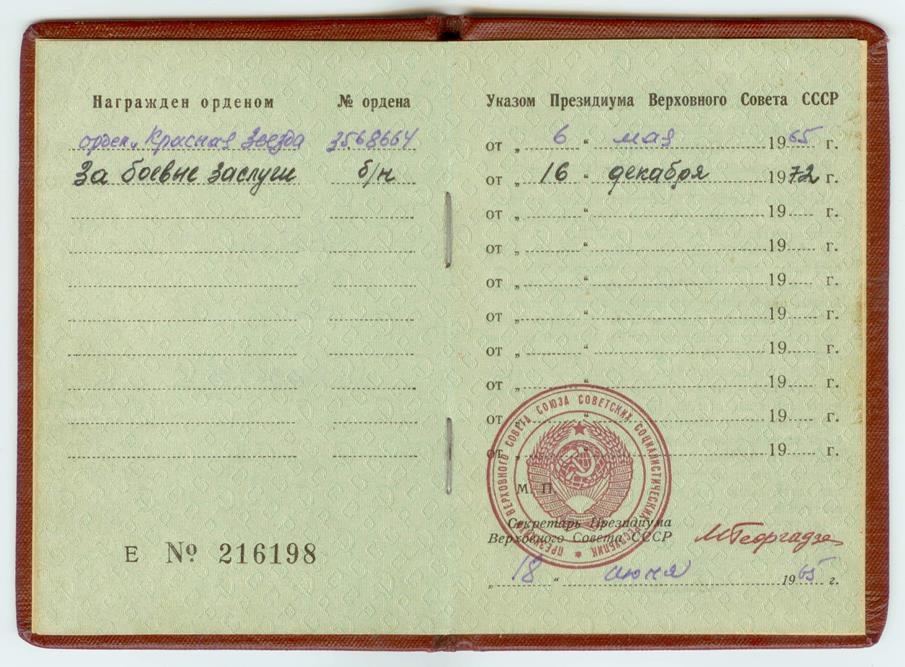 Награжден орденом № ордена
орден. Красная Звезда 3568664
За боевые заслуги б/н
Е № 216198
Указом Президиума Верховного Совета СССР
от „ 6 “ мая 1965 г.
от „ 16 “ декабря 1972 г.
от „ “ 19 г.
от „ “ 19 г.
от „ “ 19 г.
от „ “ 19 г.
от „ “ 19 г.
от „ “ 19 г.
от „ “ 19 г.
от „ “ 19 г.
ПРЕЗИДИУМ ВЕРХОВНОГО СОВЕТА СОЮЗА СОВЕТСКИХ СОЦИАЛИСТИЧЕСКИХ РЕСПУБЛИК
М. П.
Секретарь Президиума
Верховного Совета СССР МГеоргадзе
„ 18 “ июня 1965 г.